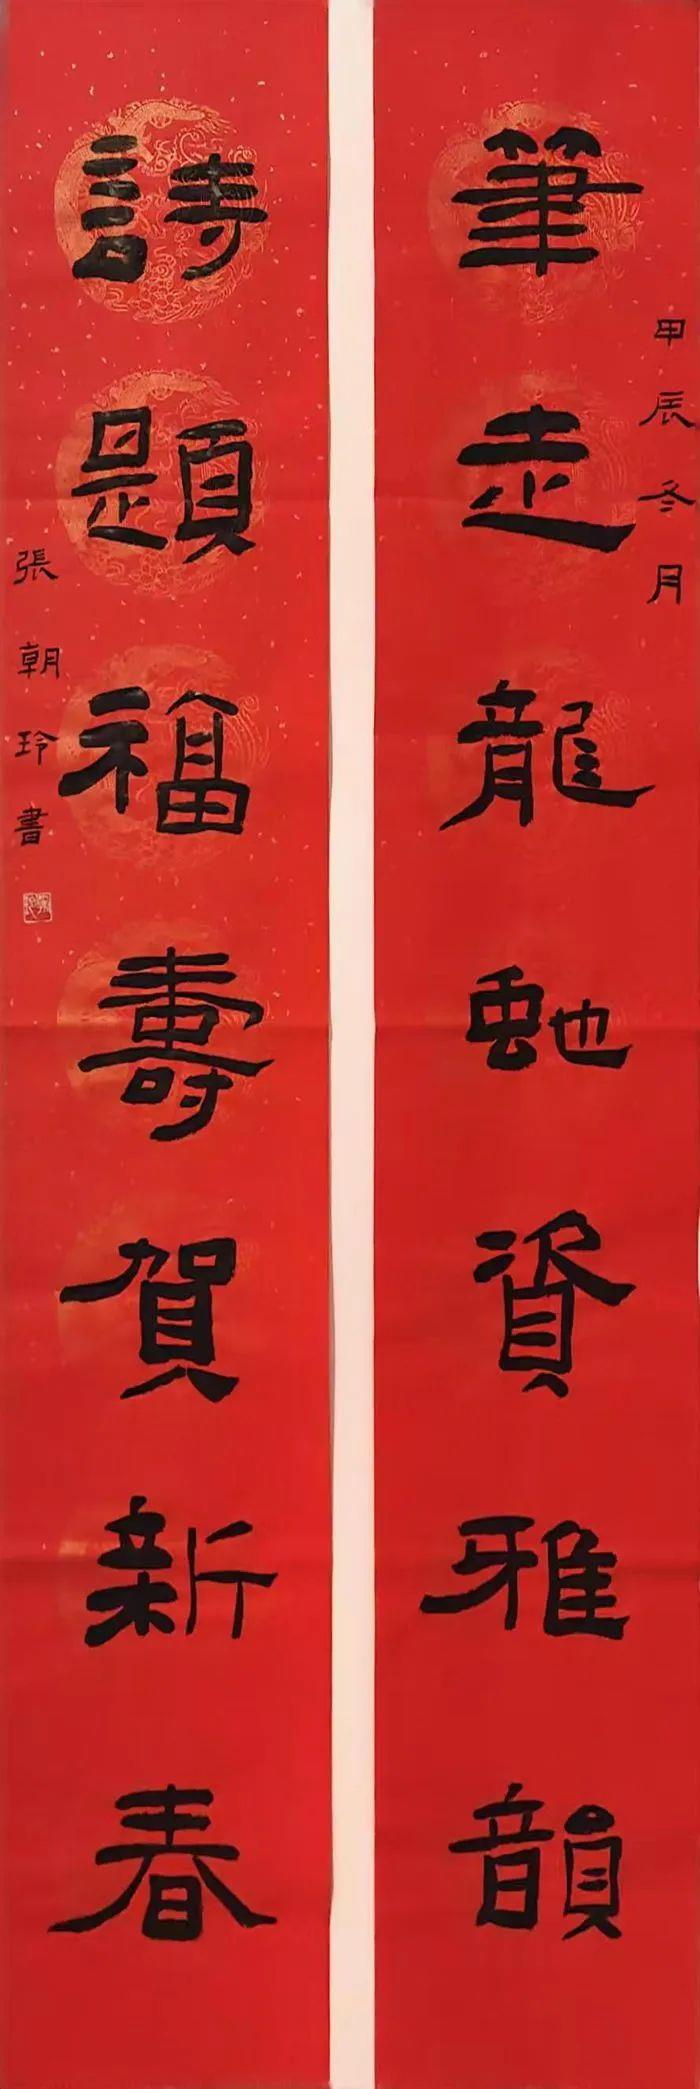 筆走龍虵資雅韻
甲辰冬月
詩題福壽賀新春
張朝玲書